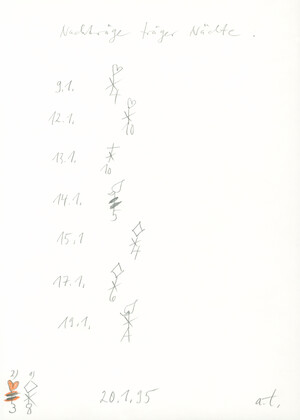 Nachträge träger Nächte.
9.1. 4
12.1. 10
13.1. 10
14.1. 5
15.1 4
17.1. 6
19.1. A
3 8
20.1.95 a.t.